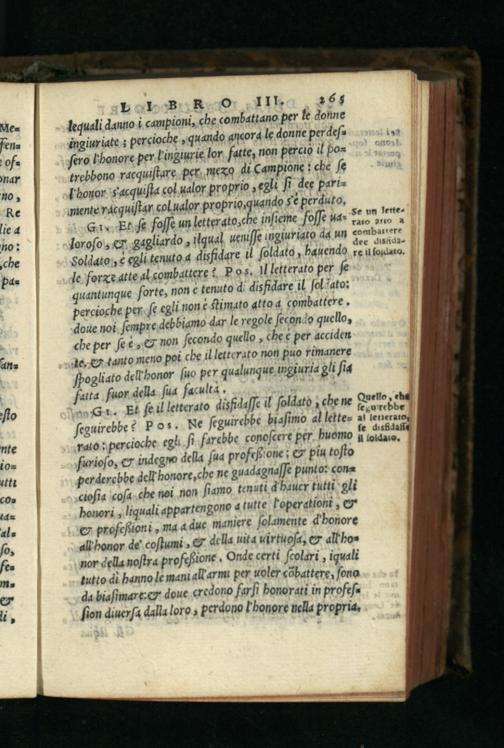 LIBRO III. 265
lequali danno i campioni, che combattano per le donne
ingiuriate; percioche, quando ancora le donne perdes=
sero l'honore per l'ingiurie lor fatte, non perciò il po=
trebbono racquistare per mezo di Campione: che se
l'honor s'acquista col ualor proprio, egli si dee pari=
mente racquistar col ualor proprio, quando s'è perduto.
GI. Et se fosse un letterato, che insieme fosse ua=
loroso, & gagliardo, ilqual uenisse ingiuriato da un
Soldato, è egli tenuto a disfidare il soldato, hauendo
le forze atte al combattere? POS. Il letterato per se
quantunque forte, non è tenuto di disfidare il soldato:
percioche per se egli non è stimato atto a combattere.
doue noi sempre debbiamo dar le regole secondo quello,
che per se è, & non secondo quello, che è per acciden
te. & tanto meno poi che il letterato non puo rimanere
spogliato dell'honor suo per qualunque ingiuria gli sia
fatta fuor della sua facultà.
GI. Et se il letterato disfidasse il soldato, che ne
seguirebbe? POS. Ne seguirebbe biasimo al lette=
rato: percioche egli si farebbe conoscere per huomo
furioso, & indegno della sua professione: & piu tosto
perderebbe dell'honore, che ne guadagnasse punto: con=
ciosia cosa che noi non siamo tenuti d'hauer tutti gli
honori, liquali appartengono a tutte l'operationi, &
& professioni, ma a due maniere solamente d'honore
all'honor de' costumi, & della uita uirtuosa, & all'ho=
nor della nostra professione. Onde certi scolari, iquali
tutto dì hanno le mani all'armi per uoler cõbattere, sono
da biasimare: & doue credono farsi honorati in profes=
sion diuersa dalla loro, perdono l'honore nella propria.
Se un lette=
rato atto a
combattere
dee disfida=
re il soldato.
Quello, che
seguirebbe
al letterato,
se disfidasse
il soldato.